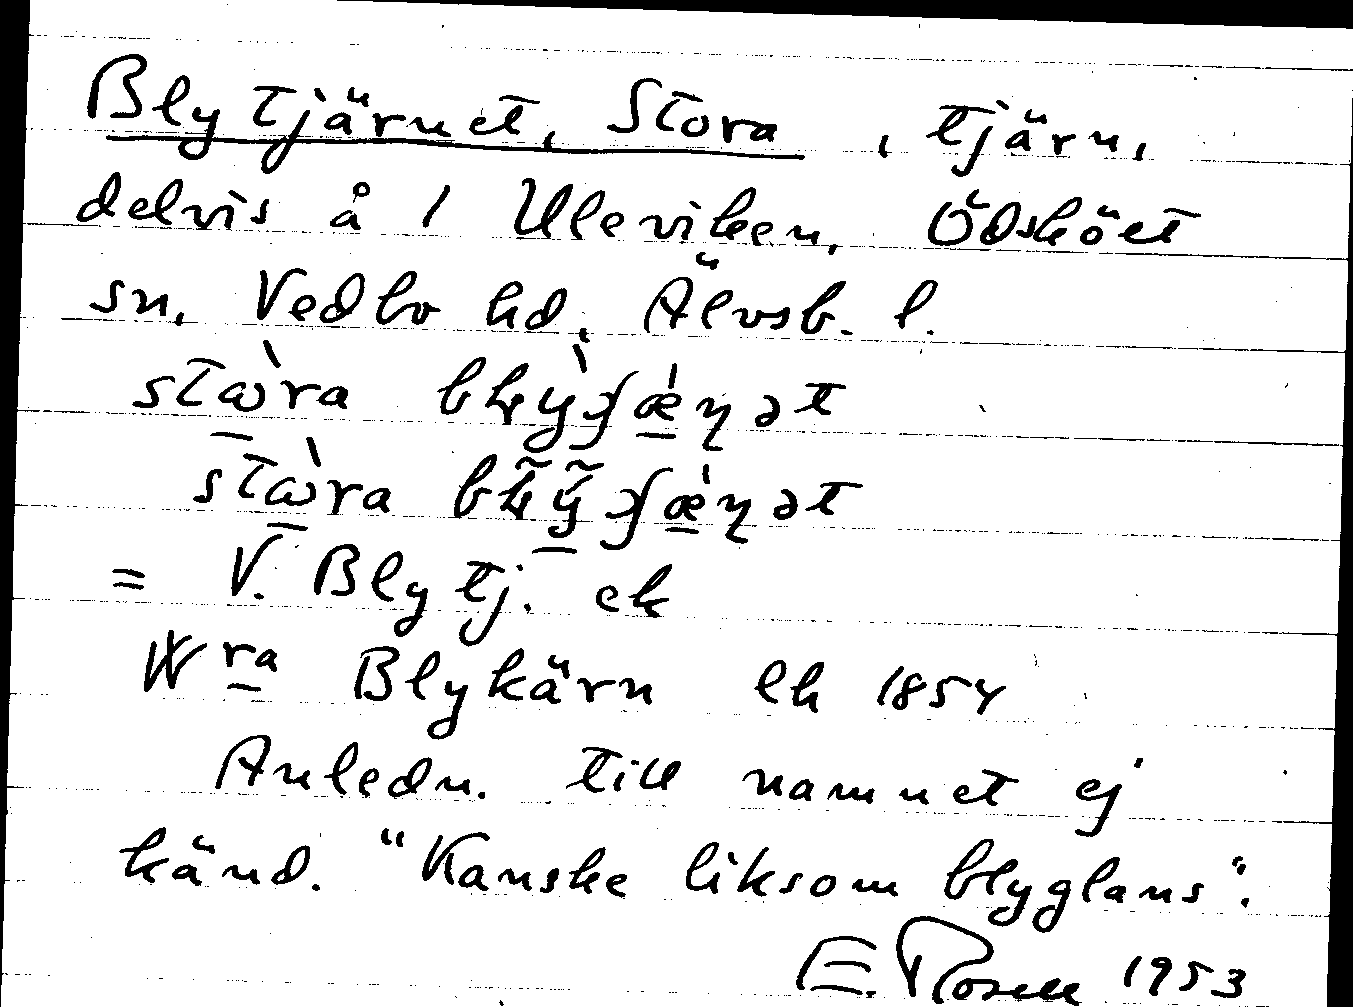 Blytjärnet, Stora, tjärn,
delvis å 1 Uleviken, Ödsköet
sn, Vedbo hd, Älvsb. l.
= V. Blytj. ek
Wra Blykärn lh 1854
Anledn. till namnet ej
känd. "Kanske liksom blyglans".
E. Rosell 1953